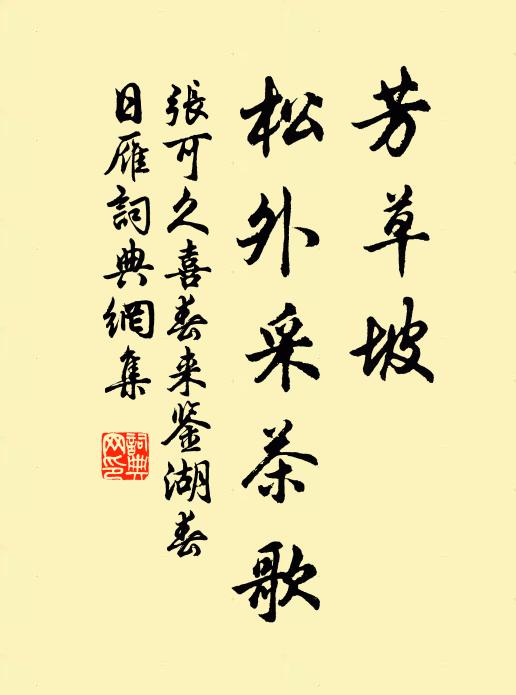 芳草坡
松外采茶歌
張可久喜春来鉴湖春
日雁詞典網集
詞典网印